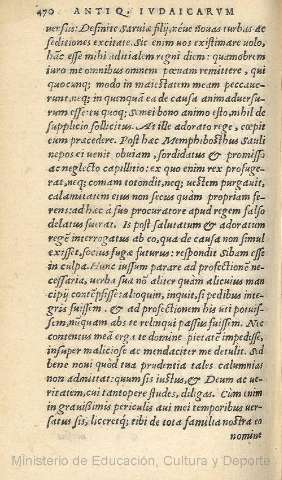 470 ANTIQ. IVDAICARVM
uersus: Definite Saruiæ filij, neue nouas turbas ac
seditiones excitate. Sic enim uos existimare uolo,
hãc esse mihi aditialem regni diem: quamobrem
iuro me omnibus omnem pœnam remittere, qui
quocunq; modo in maiestatem meam peccaue-
runt, neq; in quenquã ea de causa animaduersu-
rum esse: tu quoq; Semei bono animo esto, nihil de
supplicio sollicitus. At ille adorato rege, cœpit
eum præcedere. Post hæc Memphibosthus Sauli
nepos ei uenit obuiam, sordidatus & promissa
ac neglecto capillitio: ex quo enim rex profuge-
rat, neq; comam totondit, neq; uestem purgauit,
calamitatem eius non secus quàm propriam fe-
rens: ad hæc à suo procuratore apud regem falso
delatus fuerat. Is post salutatum & adoratum
regẽ interrogatus ab eo, qua de causa non simul
exisset, socius fugæ futurus: respondit Sibam esse
in culpa. Hunc iussum parare ad profectionẽ ne-
cessaria, uerba sua nõ aliter quàm alicuius man-
cipij contẽpsisse: alioquin, inquit, si pedibus inte-
gris fuissem, & ad profectionem his uti potuis-
sem, nũquam abs te relinqui passus fuissem. Nec
contentus meã erga te domine pietatẽ impedisse,
insuper maliciose ac mendaciter me detulit. Sed
bene noui quòd tua prudentia tales calumnias
non admittat: quum sis iustus, & Deum ac ue-
ritatem, cui tantopere studes, diligas. Cùm enim
in grauißimis periculis aui mei temporibus uer-
satus sis, liceretq; tibi de tota familia nostra eo
nomine
Ministerio de Educación, Cultura y Deporte